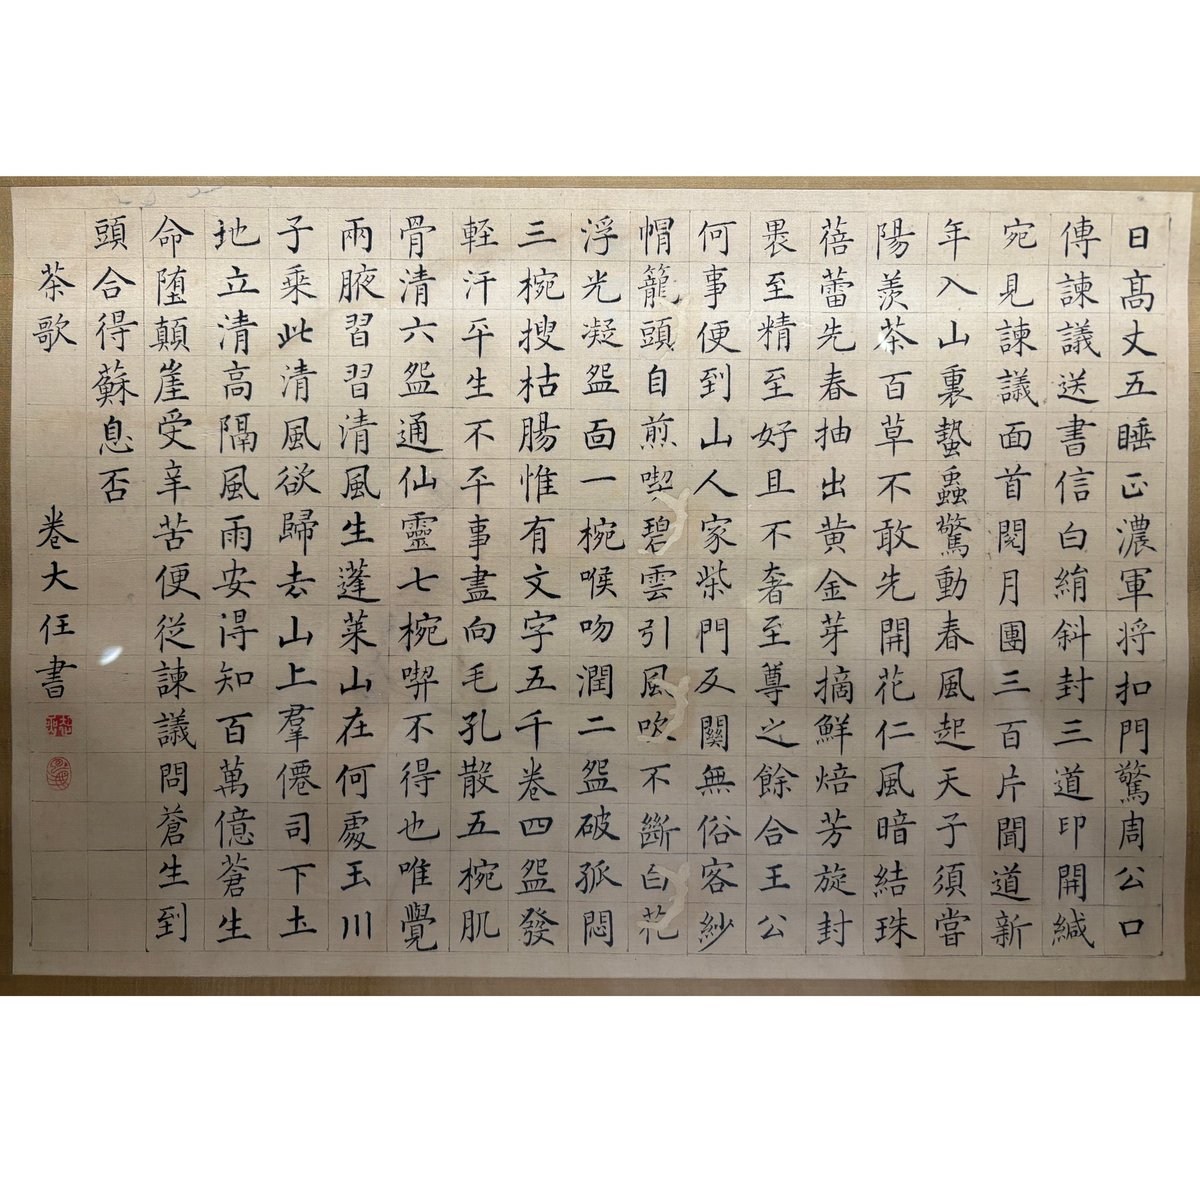 日高丈五睡正濃軍将扣門驚周公口
傳諫議送書信白絹斜封三道印開緘
宛見諫議面首閱月團三百片聞道新
年入山裏蟄蟲驚動春風起天子須嘗
陽羨茶百草不敢先開花仁風暗結珠
蓓蕾先春抽出黄金芽摘鮮焙芳旋封
裹至精至好且不奢至尊之餘合王公
何事便到山人家柴門反關無俗客紗
帽籠頭自煎喫碧雲引風吹不斷白花
浮光凝盌面一椀喉吻潤二盌破孤悶
三椀搜枯腸惟有文字五千卷四盌發
輕汗平生不平事盡向毛孔散五椀肌
骨清六盌通仙靈七椀喫不得也唯覺
兩腋習習清風生蓬萊山在何處玉川
子乘此清風欲歸去山上羣僊司下土
地立清高隔風雨安得知百萬億蒼生
命堕顛崖受辛苦便從諫議問蒼生到
頭合得蘇息否
茶歌 卷大任書